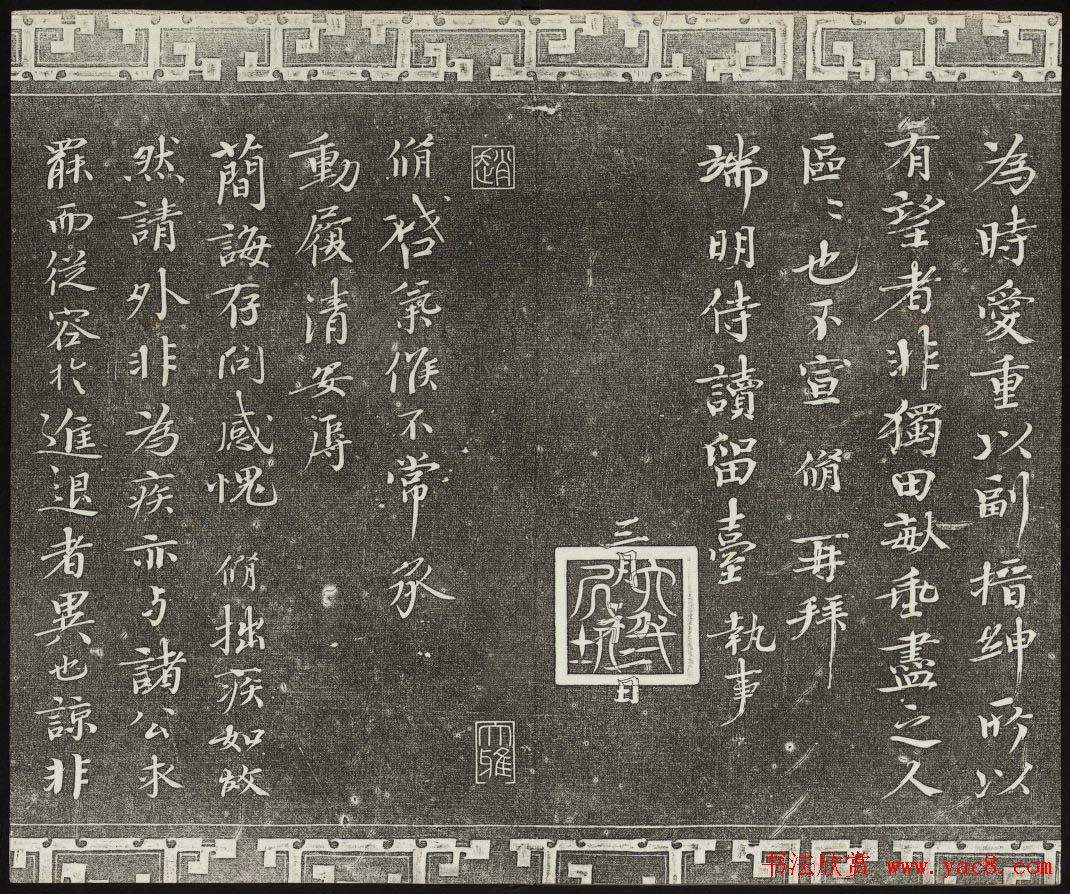 為時愛重以副搢紳所以
有望者非獨田畝垂盡之人
區〻也不宣 脩再拜
端明侍讀留臺 執事
三月初二日
趙
脩啓氣候不常承
動履清安辱
蕳誨存問感愧 脩拙疾如故
然請外非為疾亦与諸公求
罷而從容於進退者異也諒非
書法欣赏 www.yac8.com